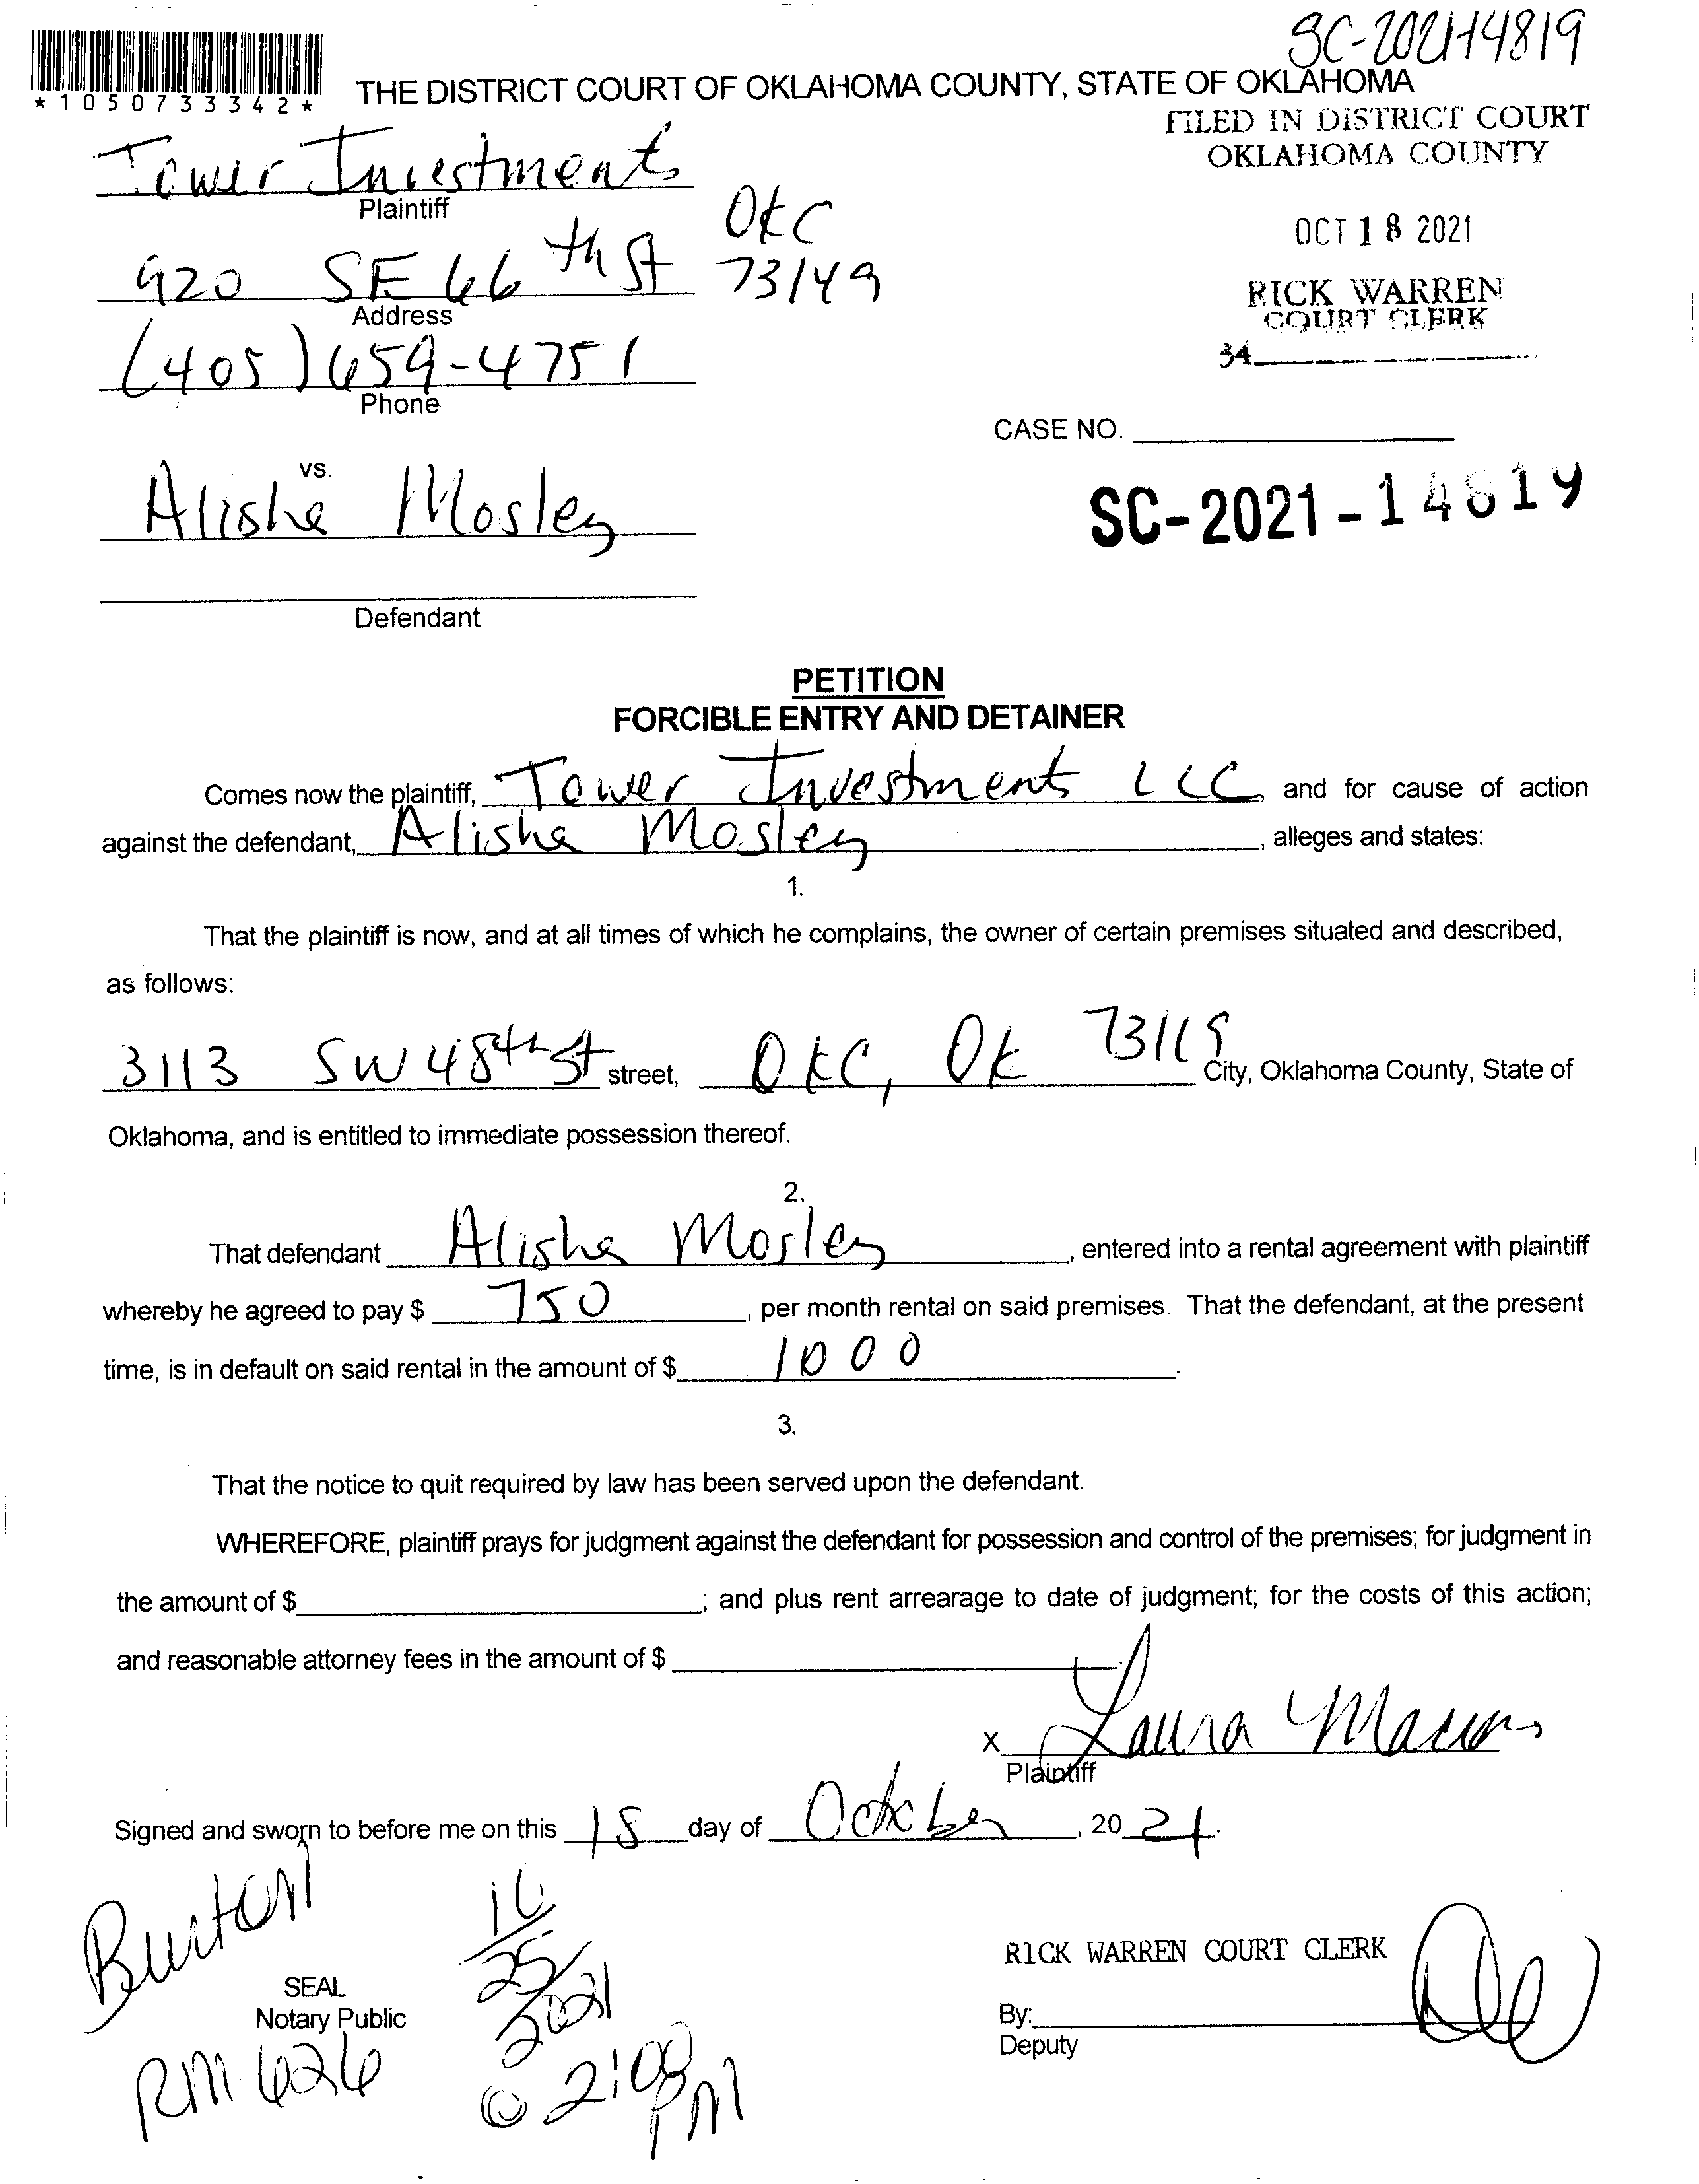 SC-2021-14819
*1050733342*
THE DISTRICT COURT OF OKLAHOMA COUNTY, STATE OF OKLAHOMA
FILED IN DISTRICT COURT
OKLAHOMA COUNTY
Tower Investments
Plaintiff
OCT 18 2021
920 SE 66th St OKC 73149
Address
RICK WARREN
COURT CLERK
34
(405) 659-4751
Phone
CASE NO.
vs.
Alisha Mosley
SC-2021-14819
Defendant
PETITION
FORCIBLE ENTRY AND DETAINER
Comes now the plaintiff, Tower Investments LLC, and for cause of action
against the defendant, Alisha Mosley, alleges and states:
1.
That the plaintiff is now, and at all times of which he complains, the owner of certain premises situated and described,
as follows:
3113 SW 48th St street, OKC, OK 73119 City, Oklahoma County, State of
Oklahoma, and is entitled to immediate possession thereof.
2.
That defendant Alisha Mosley, entered into a rental agreement with plaintiff
whereby he agreed to pay $ 750, per month rental on said premises. That the defendant, at the present
time, is in default on said rental in the amount of $ 1000.
3.
That the notice to quit required by law has been served upon the defendant.
WHEREFORE, plaintiff prays for judgment against the defendant for possession and control of the premises; for judgment in
the amount of $ ; and plus rent arrearage to date of judgment; for the costs of this action;
and reasonable attorney fees in the amount of $
x Laura
Plaintiff
Signed and sworn to before me on this 18 day of October, 2021.
Burton
10/25/2021
RICK WARREN COURT CLERK
SEAL
Notary Public
By:
Deputy
RM 626
@ 2:00 PM